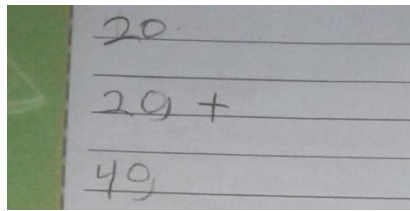 20
29 +
49